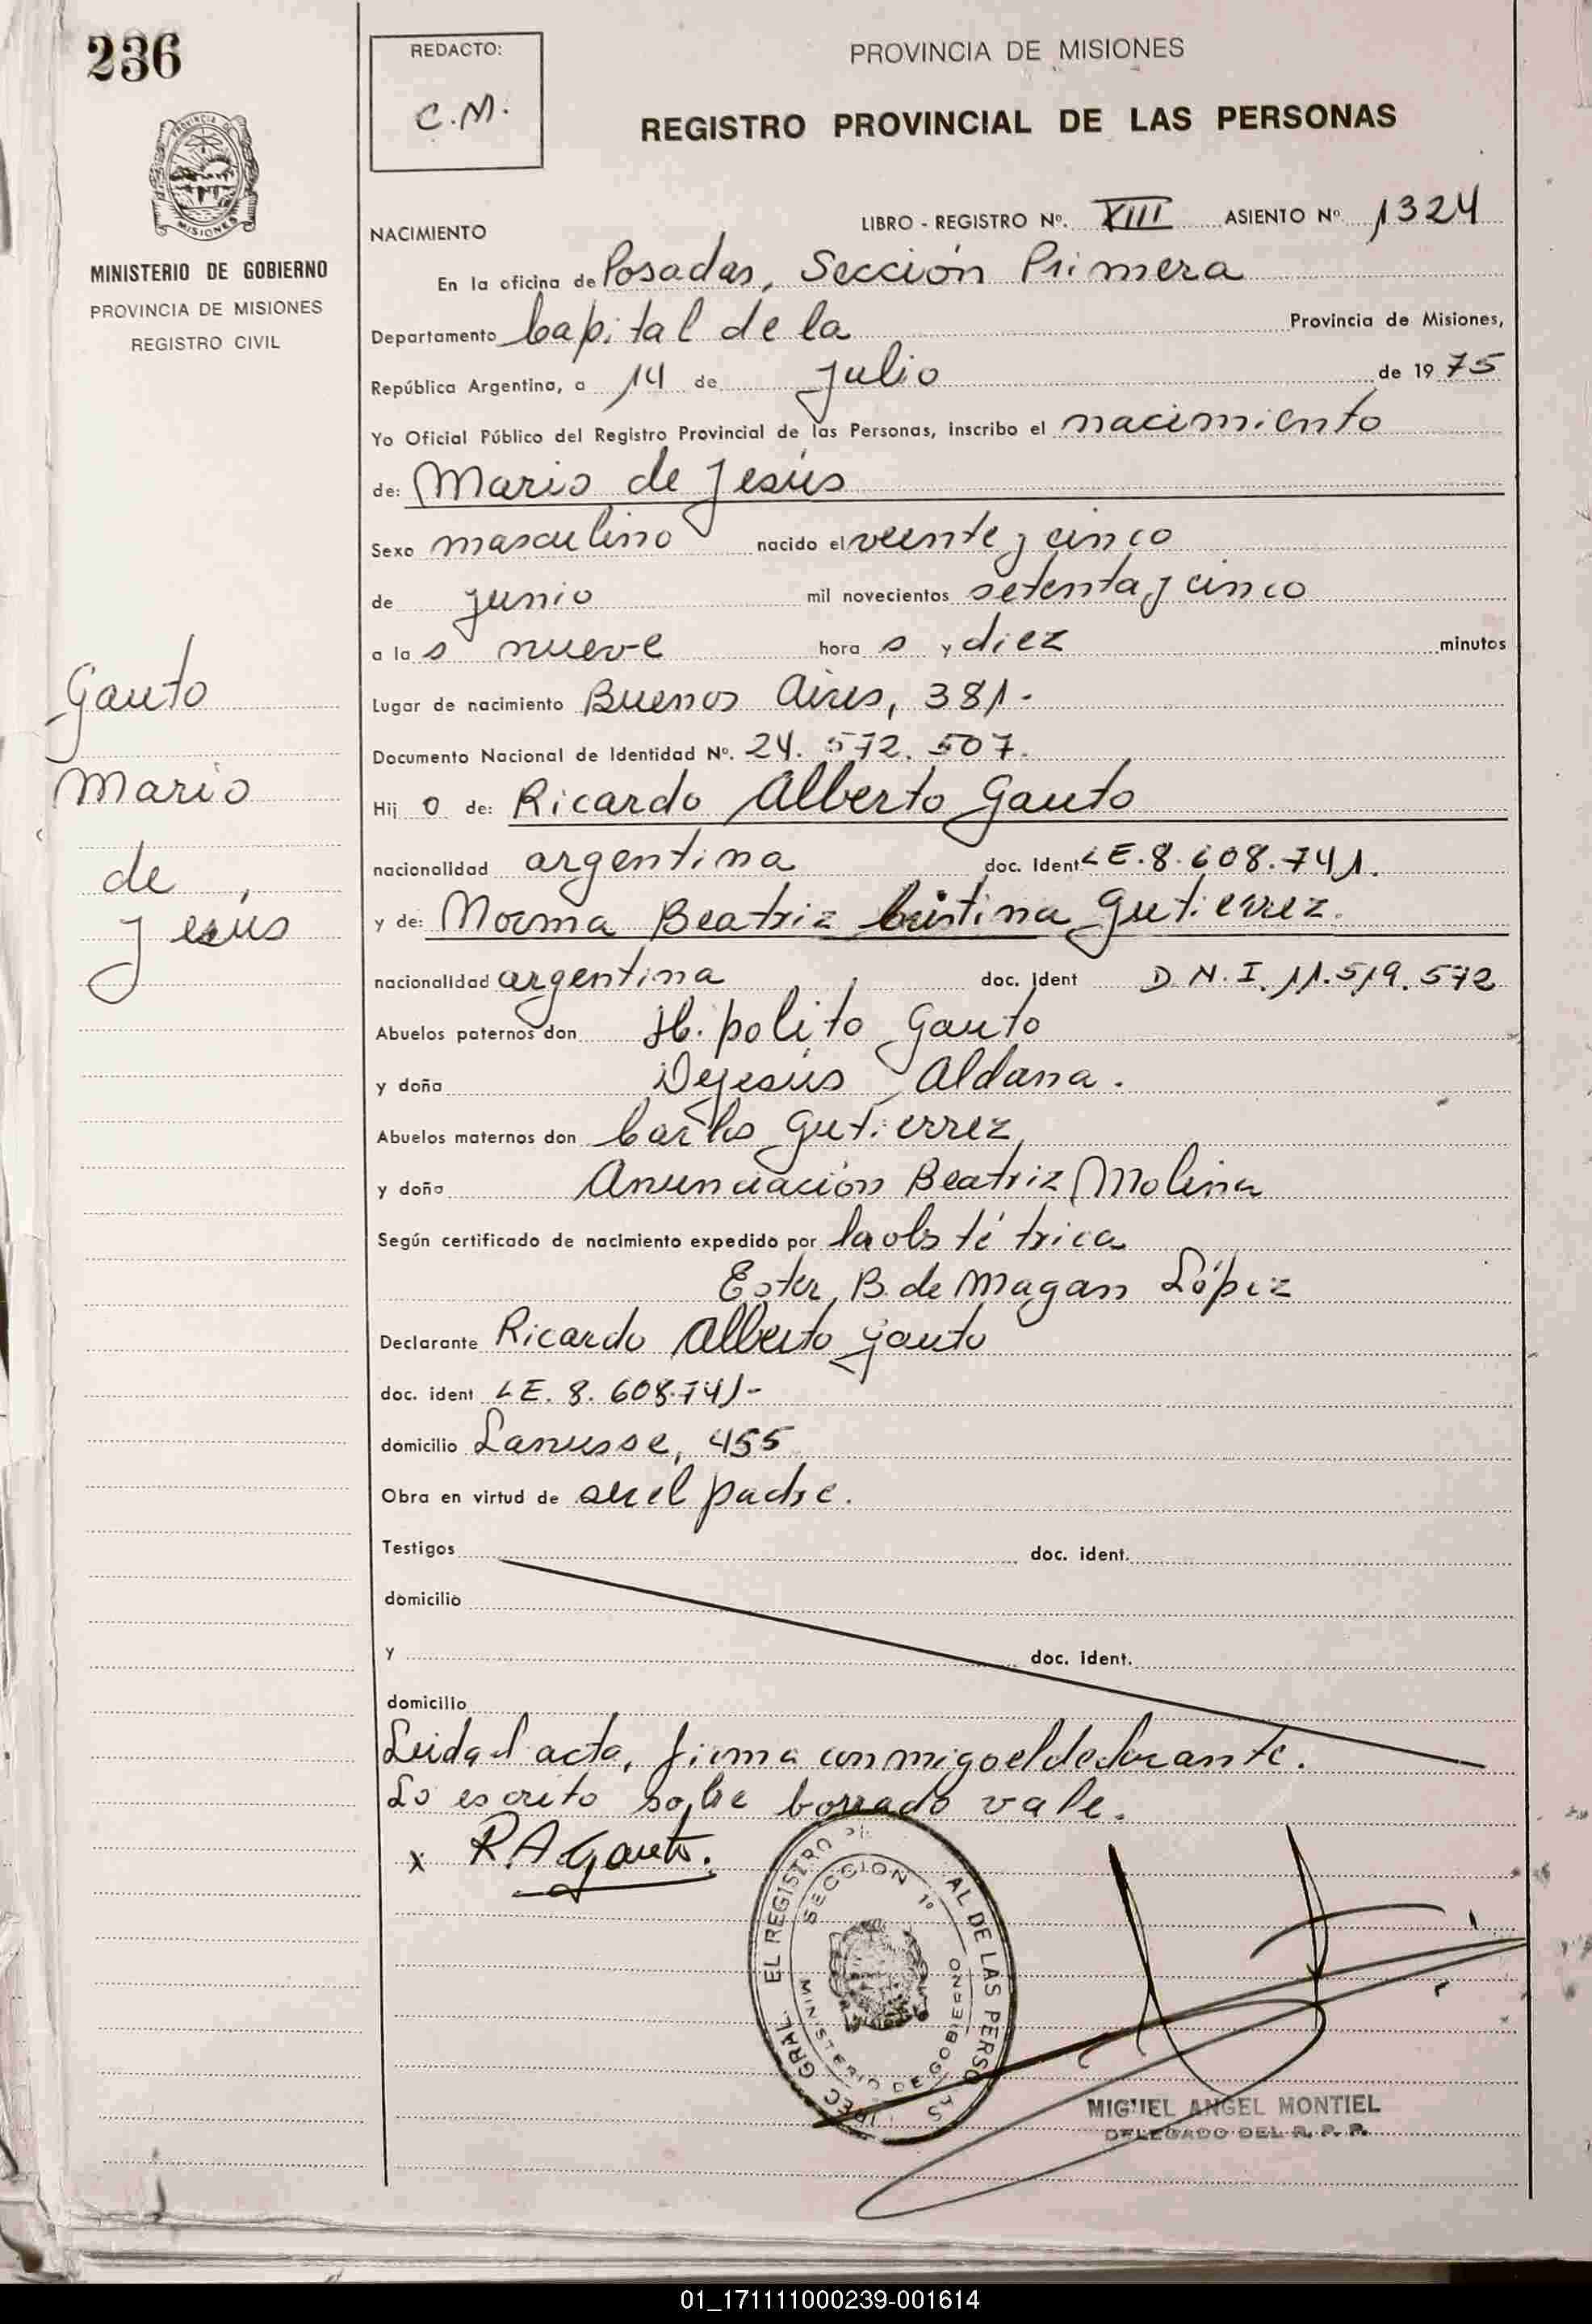 236
REDACTO:
C.M.
PROVINCIA DE MISIONES
REGISTRO PROVINCIAL DE LAS PERSONAS
PROVINCIA DE
MISIONES
MINISTERIO DE GOBIERNO
PROVINCIA DE MISIONES
REGISTRO CIVIL
Gauto
Mario
de
Jesús
NACIMIENTO
LIBRO - REGISTRO Nº. XIII ASIENTO Nº 1324
En la oficina de Posadas, Sección Primera
Departamento Capital de la Provincia de Misiones,
República Argentina, a 14 de Julio de 1975
Yo Oficial Público del Registro Provincial de las Personas, inscribo el nacimiento
de: Mario de Jesús
Sexo masculino nacido el veinte y cinco
de junio mil novecientos setenta y cinco
a la s nueve hora s y diez minutos
Lugar de nacimiento Buenos Aires, 381.
Documento Nacional de Identidad Nº. 24.572.507.
Hij o de: Ricardo Alberto Gauto
nacionalidad argentina doc. Ident L E. 8.608.741.
y de: Norma Beatriz Cristina Gutierrez.
nacionalidad argentina doc. Ident D.N.I. 11.519.572
Abuelos paternos don Hipolito Gauto
y doña Dejesús Aldana.
Abuelos maternos don Carlos Gutierrez
y doña Anunciación Beatriz Molina
Según certificado de nacimiento expedido por la obstétrica
Ester B. de Magan López
Declarante Ricardo Alberto Gauto
doc. ident L E. 8.608.741-
domicilio Lanusse, 455
Obra en virtud de ser el padre.
Testigos doc. ident.
domicilio
y doc. ident.
domicilio
Leida el acta, firma conmigo el declarante.
Lo escrito sobre borrado vale.
x R.A Gauto.
EL REGISTRO AL DE LAS PERSO AS
GRAL.
SECCION 1º
MINISTERIO DE GOBIERNO
MIGUEL ANGEL MONTIEL
DELEGADO DEL R. P. P.
01_171111000239-001614